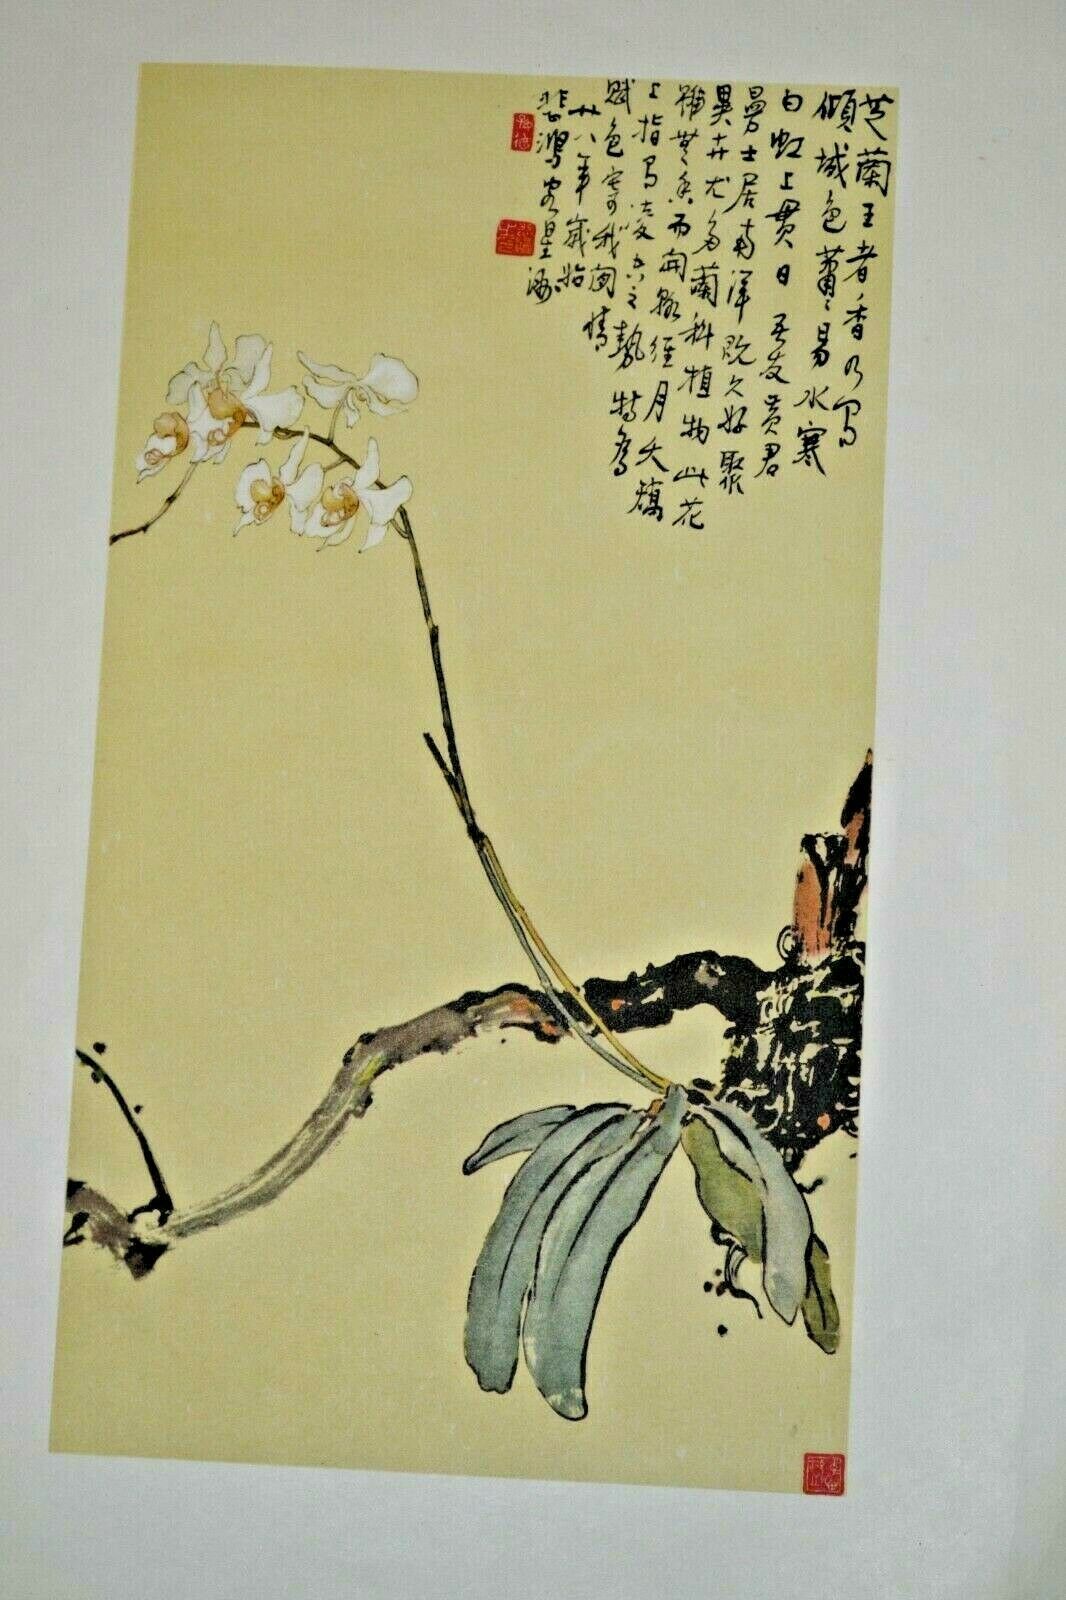 芝蘭王者香乃寫
傾城色蕭〻易水寒
白虹上貫日 吾友黃君
曼士居南洋既久好聚
異卉尤多蘭科植物此花
雖無香而開歷經月夭矯
上指有凌雲之勢特為
賦色寄我閒情
廿八年歲始
悲鴻客星洲